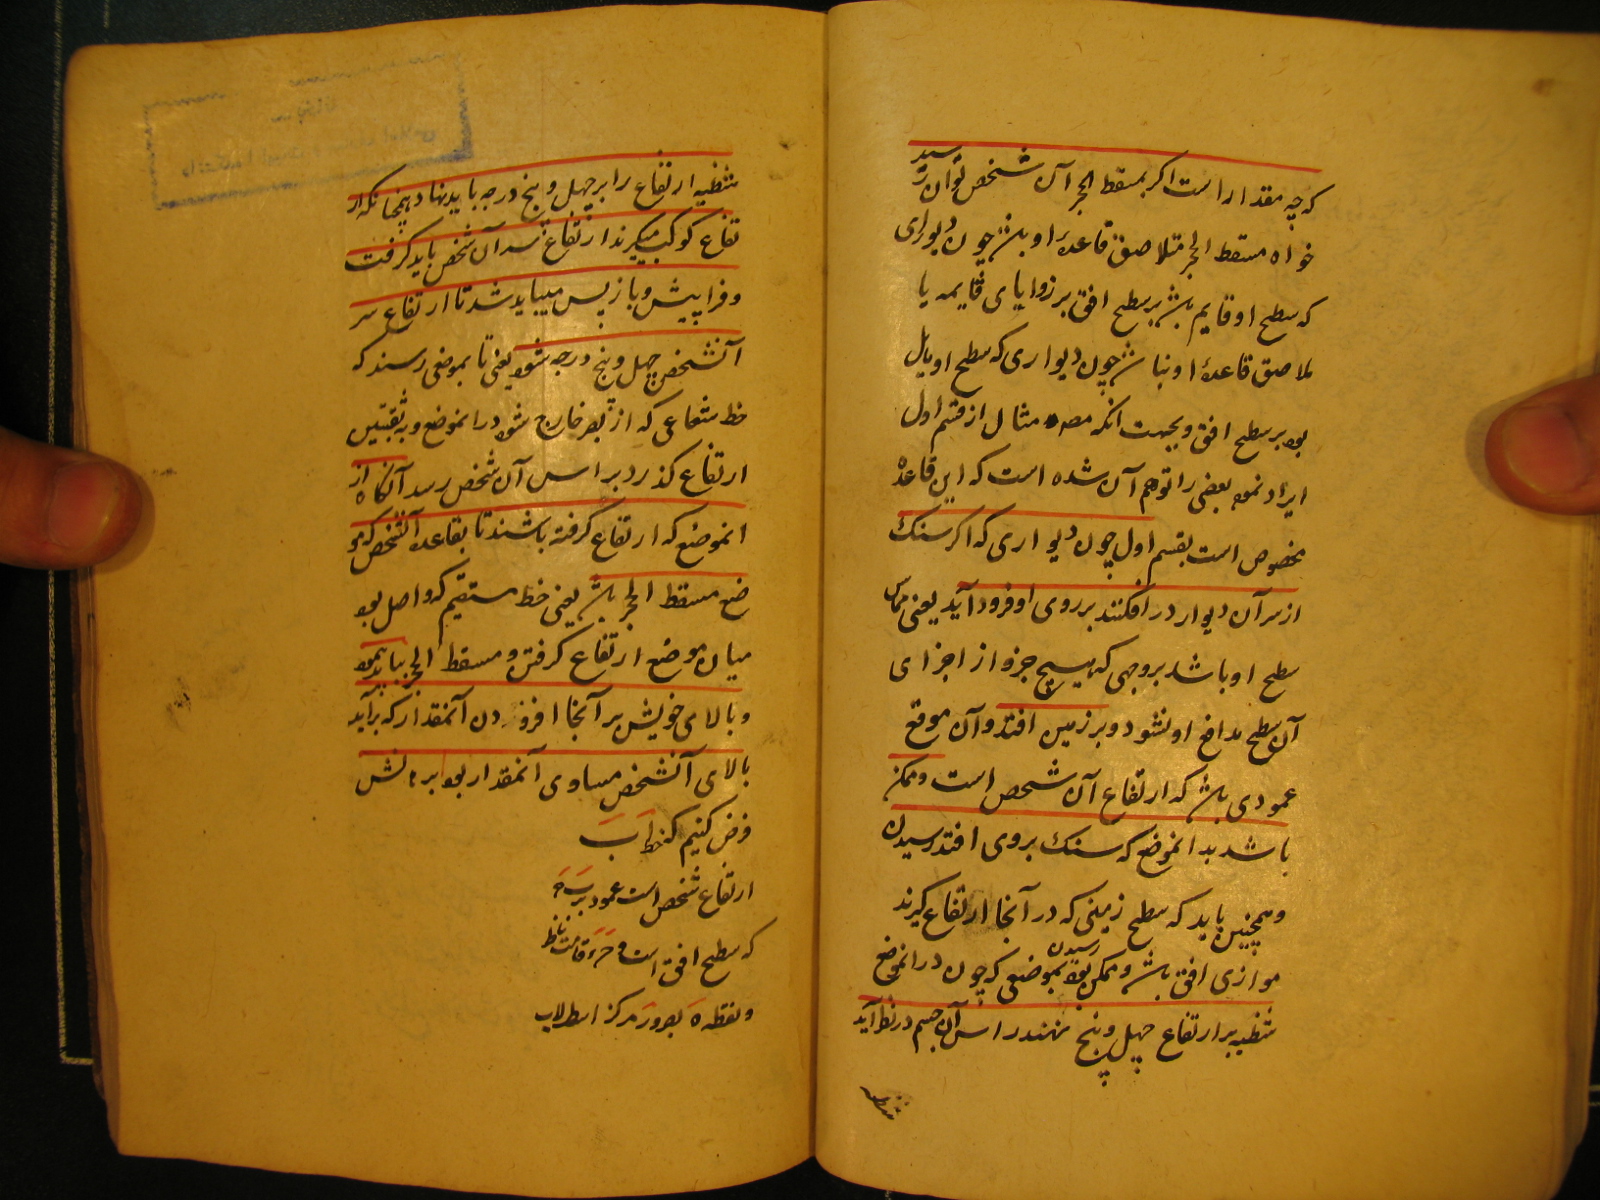 که چه مقدار است اگر بمسقط الحجر آن شخص توان رسید
خواه مسقط الحجر متلاصق قاعدهٔ او باشد چون دیواری
که سطح او قایم باشد بر سطح افق بر زوایای قایمه یا
ملاصق قاعدهٔ او نباشد چون دیواری که سطح او مایل
بود بر سطح افق و بجهت آنکه مصه مثال از قسم اول
ایراد نموده بعضی را توهم آن شده است که این قاعده
مخصوص است بقسم اول چون دیواری که اگر سنک
از سر آن دیوار در افکنند بر روی او فرود آید یعنی مماس
سطح او باشد بر وجهی که هیچ جزو از اجزای
آن سطح مدافع او نشود و بر زمین افتد و آن موقع
عمودی باشد که ارتفاع آن شخص است و ممکن
باشد بدانموضع که سنک بروی افتد رسیدن
و همچنین باید که سطح زمینی که در آنجا ارتفاع گیرند
موازی افق باشد و ممکن بود رسیدن بموضعی که چون در انموضع
شظیه بر ارتفاع چهل و پنج نهند راس آن جسم در نظر آید
شظیه
شظیه ارتفاع را بر چهل و پنج درجه باید نهاد و همچنانکه ار
تفاع کوکب میگیرند ارتفاع سر آن شخص باید گرفت
و فرا پیش و باز پس میباید شد تا ارتفاع سر
آنشخص چهل و پنج درجه شود یعنی تا بموضعی رسند که
خط شعاعی که از بصر خارج شود در انموضع و به ثقبتین
ارتفاع گذرد بر اس آن شخص رسد آنگاه از
انموضع که ارتفاع گرفته باشند تا بقاعده آنشخص که مو
ضع مسقط الحجر باشد یعنی خط مستقیم که واصل بود
میان موضع ارتفاع گرفتن و مسقط الحجر بباید پیمود
و بالای خویش بر آنجا افزودن آنمقدار که برآید
بالای آنشخص مساوی آنمقدار بود برهانش
فرض کنیم که خط اب
ارتفاع شخص است عمود بر ب ه
که سطح افق است و ح ه قامت ناظر
و نقطه ه بصر و ر مرکز اسطرلاب